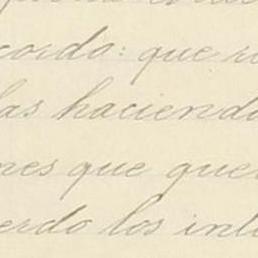 cordo: que r
las haciend
nes que que
erdo los int